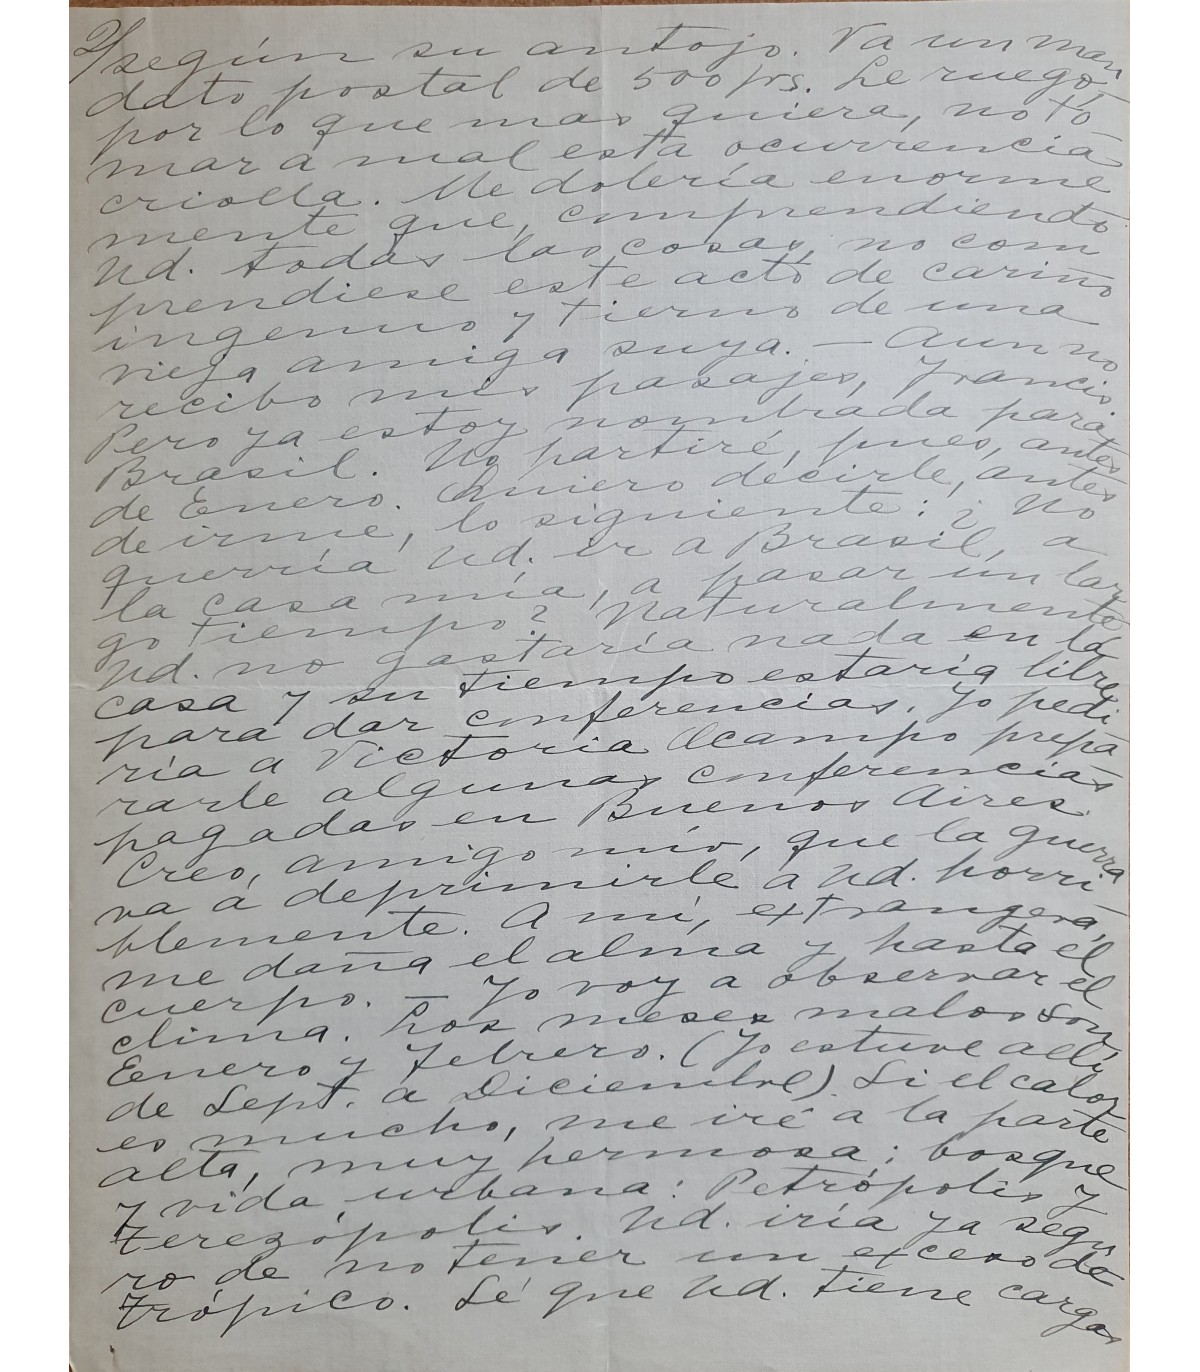 2/ según su antojo. Va un man
dato postal de 500 frs. Le ruego,
por lo que mas quiera, no to
mar a mal esta ocurrencia
criolla. Me dolería enorme
mente que, comprendiendo
Ud. todas las cosas, no com
prendiese este acto de cariño
ingenuo y tierno de una
vieja amiga suya. — Aun no
recibo mis pasajes, Francis.
Pero ya estoy nombrada para
Brasil. No partiré, pues, antes
de Enero. Quiero decirle, antes
de irme, lo siguiente: ¿No
querría Ud. ir a Brasil, a
la casa mía, a pasar un lar
go tiempo? Naturalmente
Ud. no gastaría nada en la
casa y su tiempo estaría libre
para dar conferencias. Yo pedi
ría a Victoria Ocampo prepa
rarle algunas conferencias
pagadas en Buenos Aires
Creo, amigo mío, que la guerra
va a deprimirle a Ud. horri
blemente. A mí, extrangera,
me daña el alma y hasta el
cuerpo. — Yo voy a observar el
clima. Los meses malos son
Enero y Febrero. (Yo estuve allí
de Sept. a Diciembre) Si el calor
es mucho, me iré a la parte
alta, muy hermosa; bosque
y vida urbana: Petrópolis y
Terezópolis. Ud. iría ya segu
ro de no tener un exceso de
trópico. Sé que Ud. tiene cargas